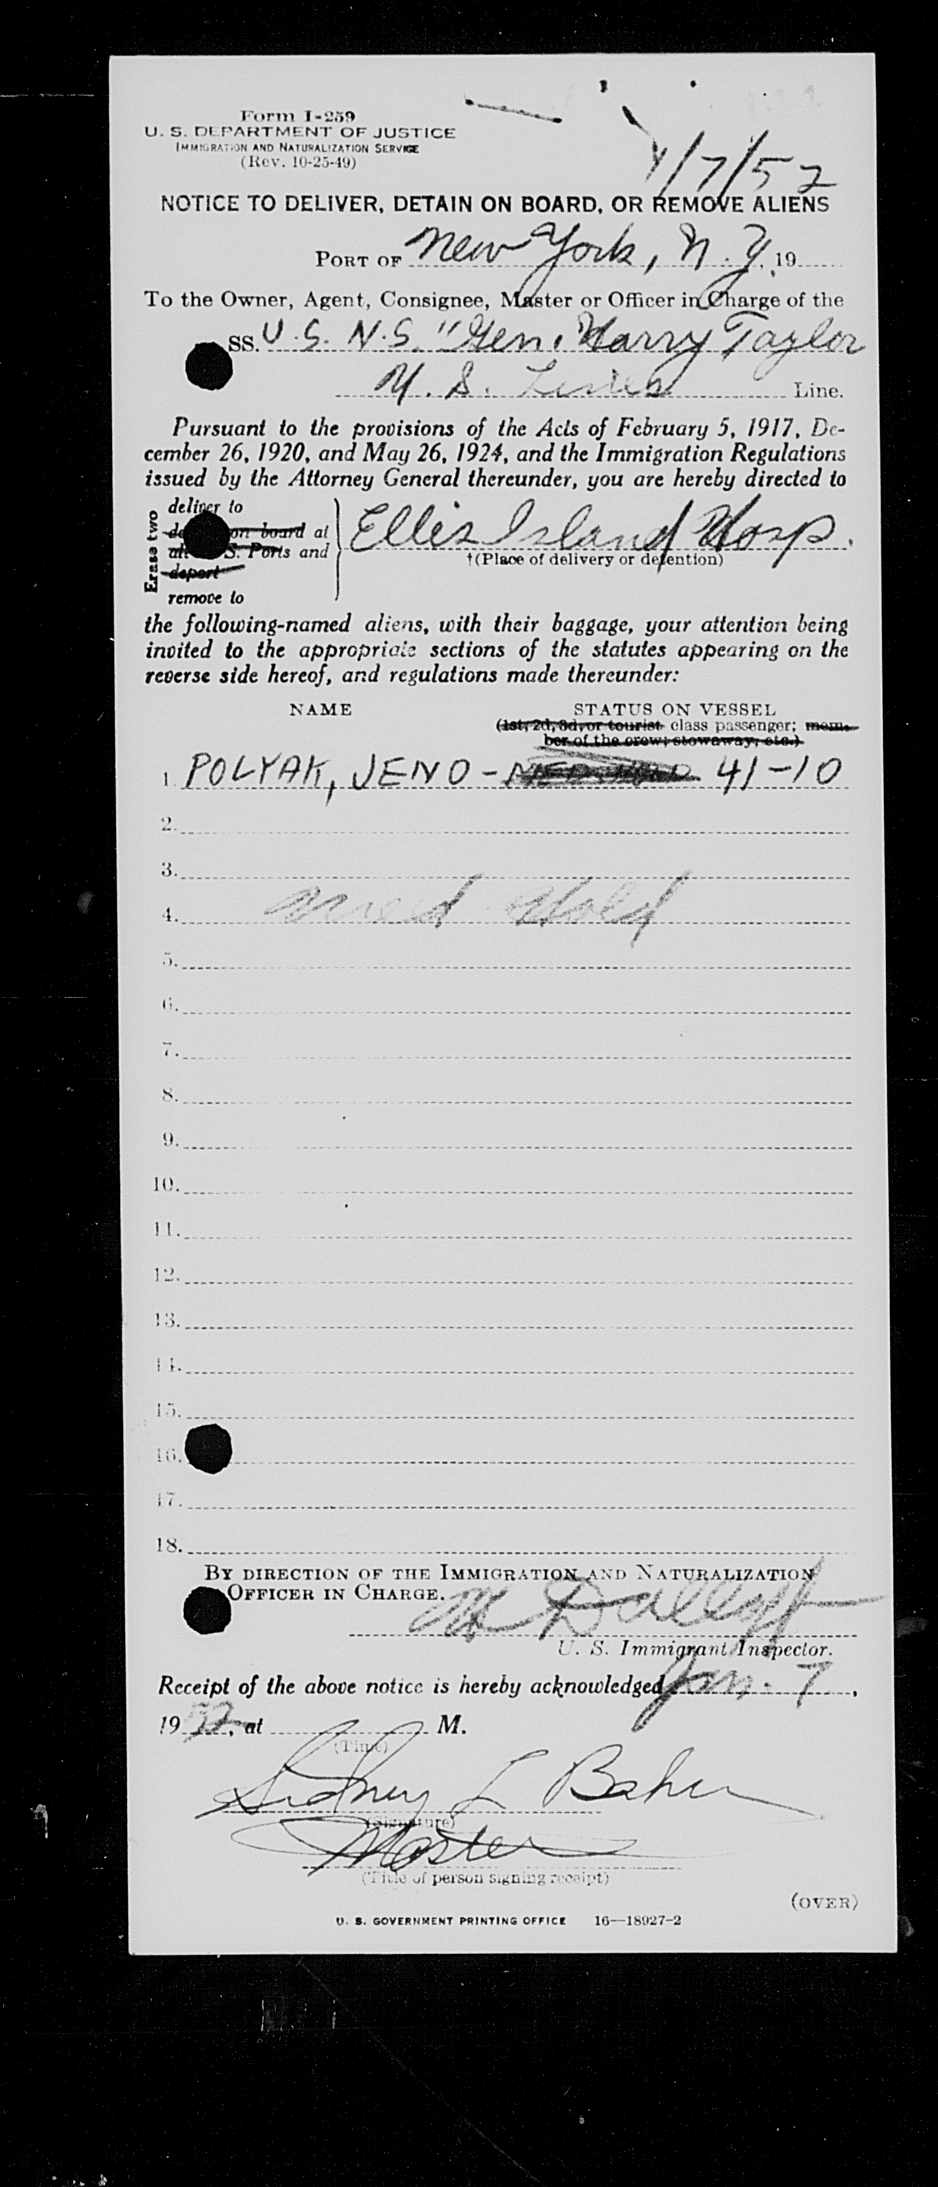 Form I-259
U. S. DEPARTMENT OF JUSTICE
IMMIGRATION AND NATURALIZATION SERVICE
(Rev. 10-25-49)
1/7/52
NOTICE TO DELIVER, DETAIN ON BOARD, OR REMOVE ALIENS
PORT OF New York, N.Y. 19
To the Owner, Agent, Consignee, Master or Officer in Charge of the
SS. U.S.N.S. "Gen. Harry Taylor
U.S. Lines Line.
Pursuant to the provisions of the Acts of February 5, 1917, De-
cember 26, 1920, and May 26, 1924, and the Immigration Regulations
issued by the Attorney General thereunder, you are hereby directed to
Erase two
deliver to
on board at
all U.S. Ports and
deport
remove to
Ellis Island Hosp.
†(Place of delivery or detention)
the following-named aliens, with their baggage, your attention being
invited to the appropriate sections of the statutes appearing on the
reverse side hereof, and regulations made thereunder:
NAME STATUS ON VESSEL
(1st, 2d, 3d, or tourist class passenger; mem-
ber of the crew; stowaway, etc.)
1. POLYAK, JENO - MED. HOLD 41-10
2.
3.
4. Med Hold
5.
6.
7.
8.
9.
10.
11.
12.
13.
14.
15.
16.
17.
18.
BY DIRECTION OF THE IMMIGRATION AND NATURALIZATION
OFFICER IN CHARGE.
U. S. Immigrant Inspector.
Receipt of the above notice is hereby acknowledged Jan. 7,
1952, at M.
(Time)
Sidney L Baker
(Signature)
Master
(Title of person signing receipt)
(OVER)
U. S. GOVERNMENT PRINTING OFFICE 16—18927-2